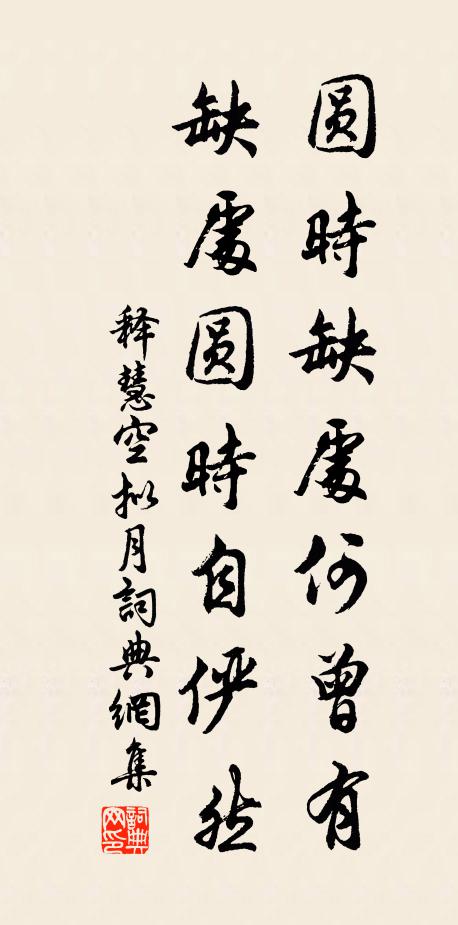 圆時缺處何曾有
缺處圆時自俨然
释慧空拟月詞典網集
詞典网印